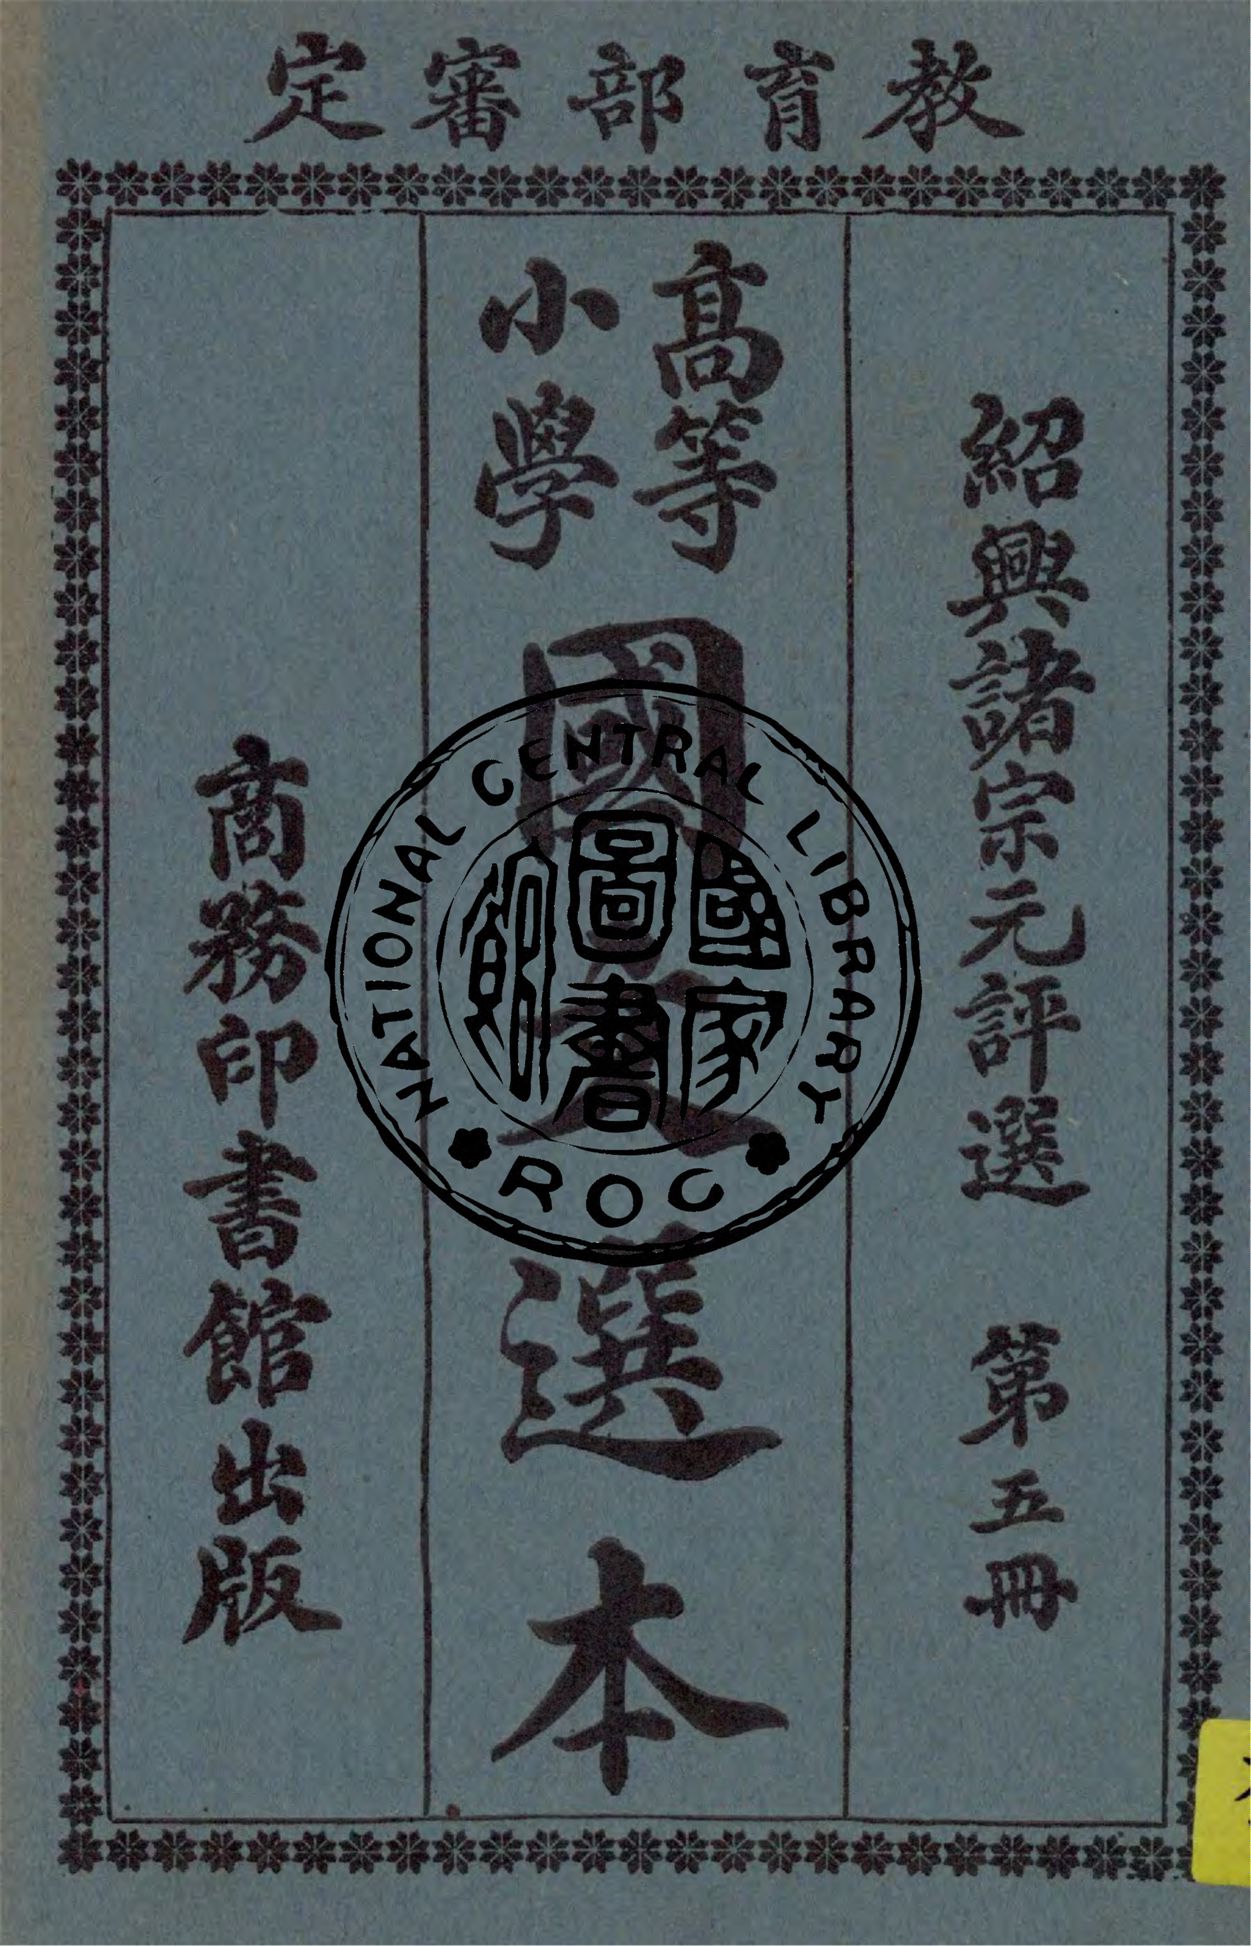 教育部審定
紹興諸宗元評選 第五冊
高等
小學
國文選本
商務印書館出版
NATIONAL CENTRAL LIBRARY
ROC
國家
圖書
館